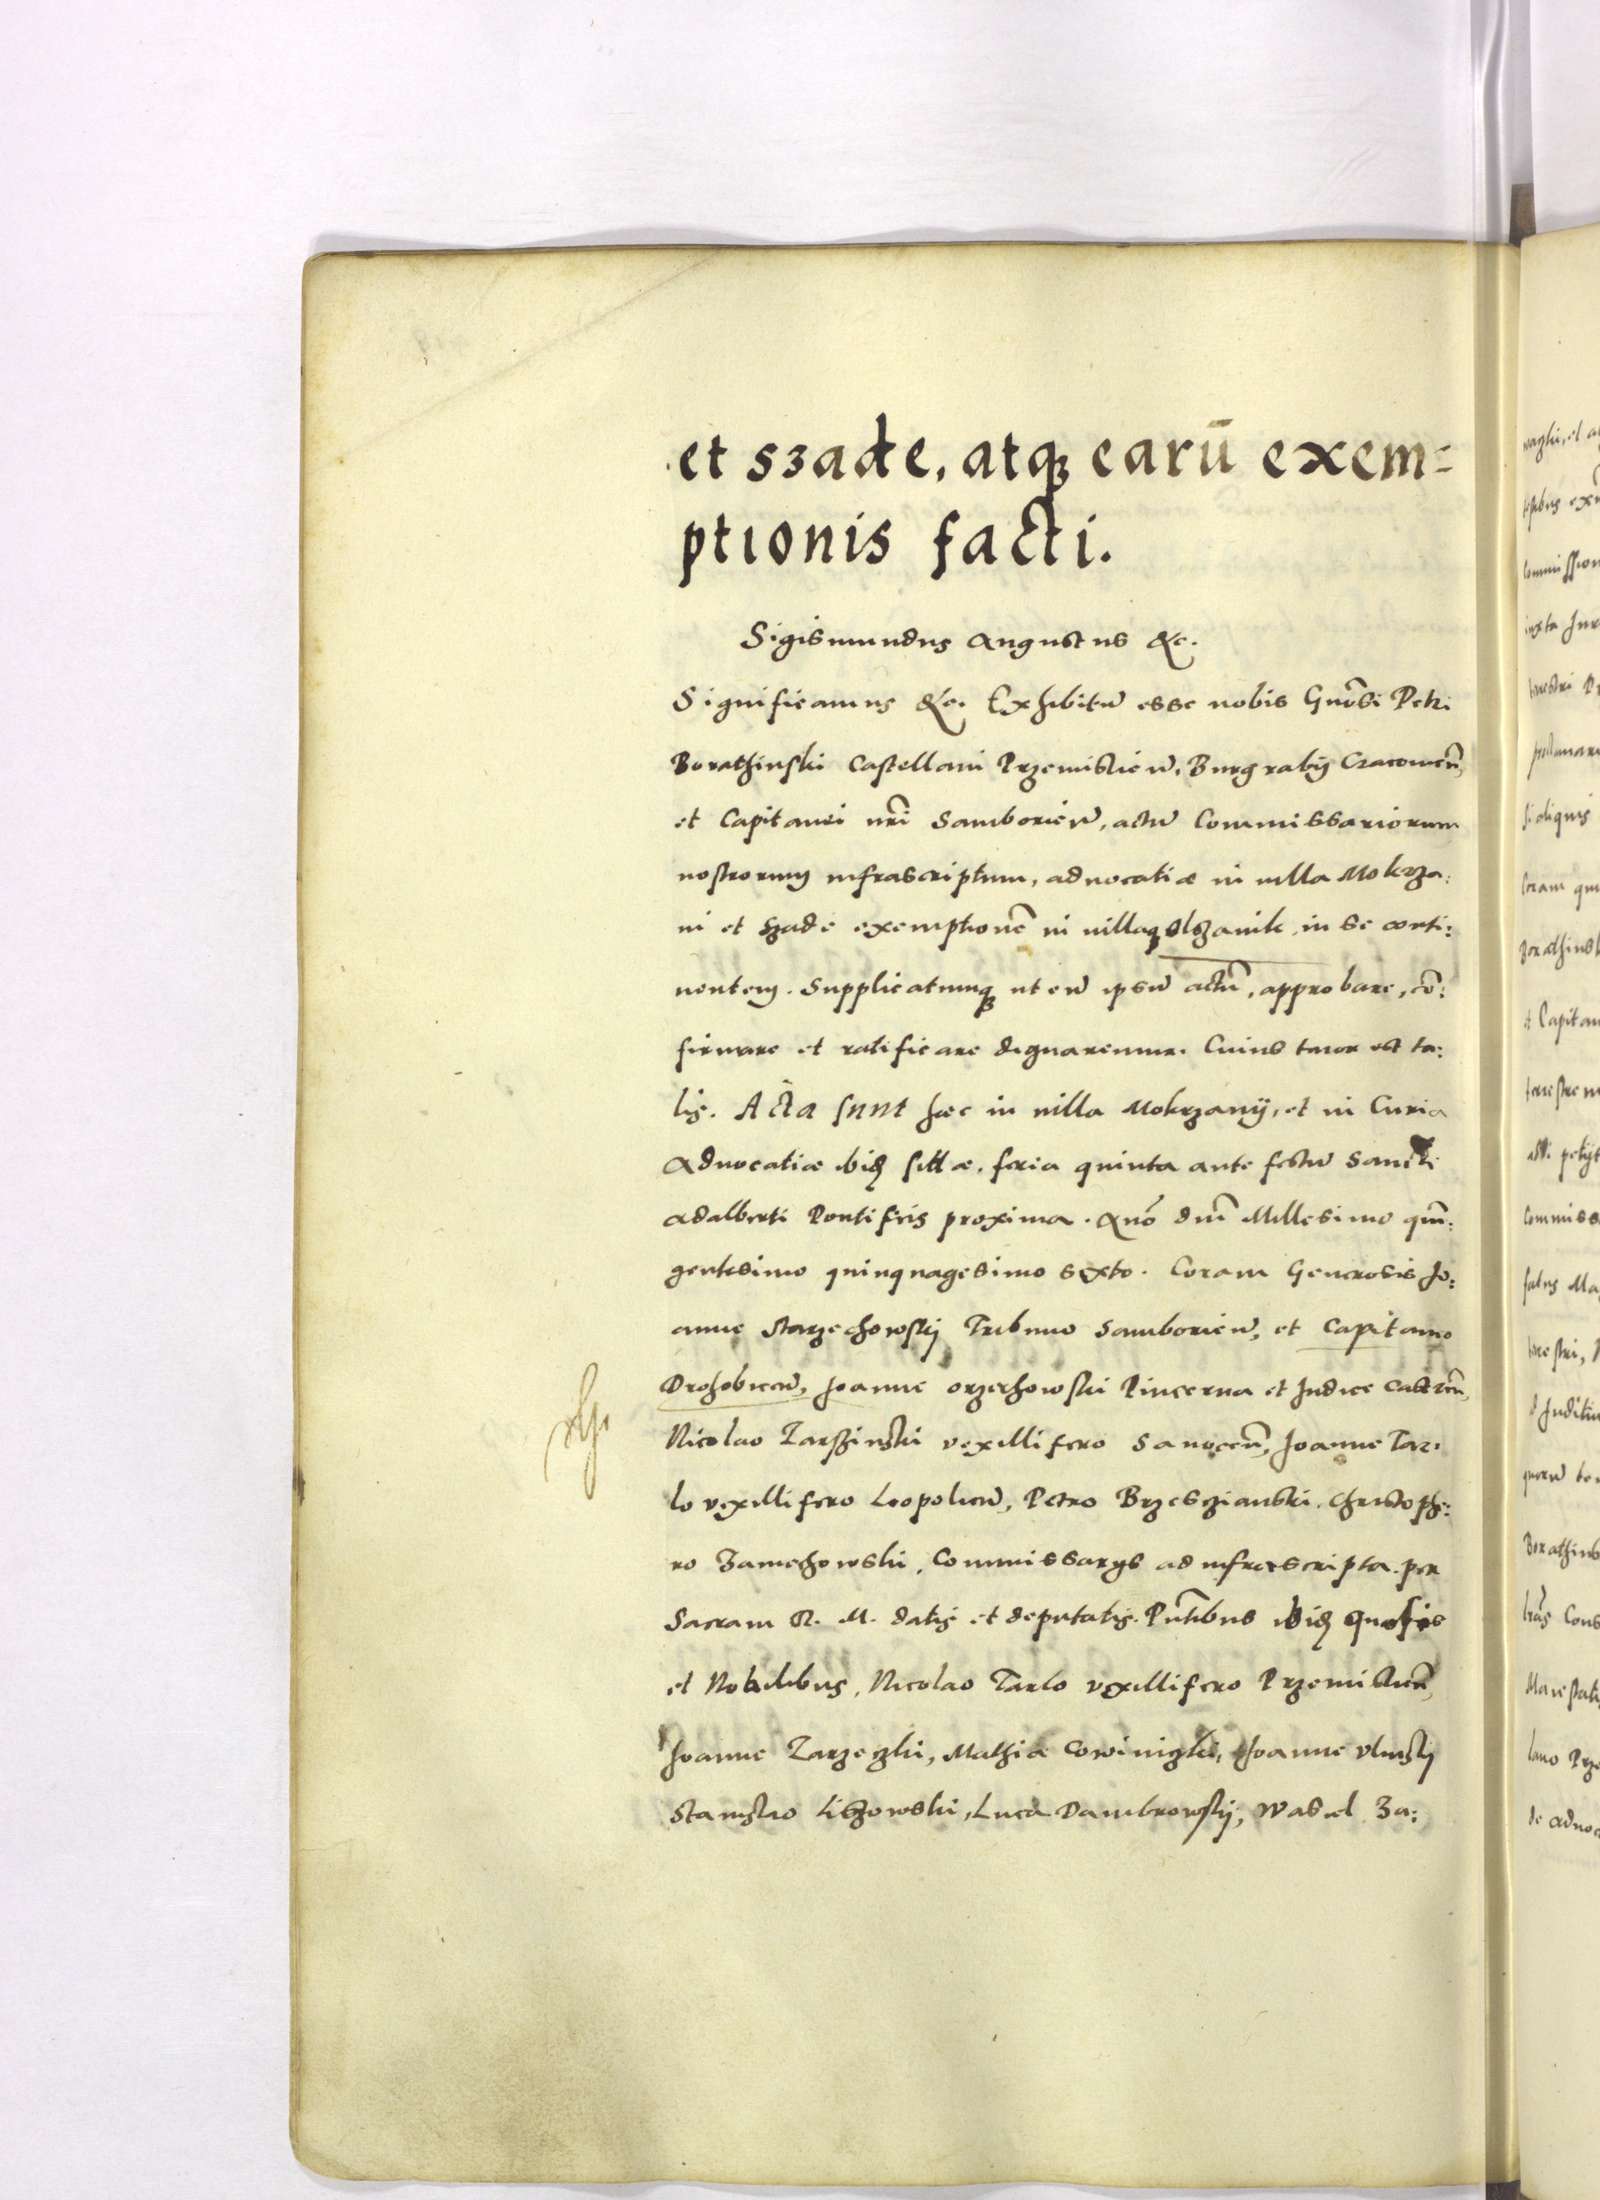 et szade, atqꝫ earū exem=
ptionis facti.
Sigismundus Augustus &c.
Significamus &c. Exhibitū esse nobis Gnōsi Petri
Borathinski Castellani Przemislien̄, Burgrabij Cracovien̄,
et Capitanei nr̄i Samborien̄, actū Commissariorum
nostrorum infrascriptum, advocatiæ in villa Mokrza:
ni et szade exemptionē in villaqꝫ Olszanik in se conti:
nentem. Supplicatumqꝫ ut eū ipsū actū, approbare, cō:
firmare et ratificare dignaremur. Cuius tenor est ta:
lis. Acta sunt hæc in villa Mokrzanij, et in Curia
Advocatiæ ibidꝫ sittæ. feria quinta ante festū Sancti
Adalberti Pontificis proxima. Anō dnī Millesimo quin̄:
gentesimo quinquagesimo sexto. Coram Generosis Jo:
anne Starzechowskij Tribuno Samborien̄, et Capitaneo
Drohobicen̄, Joanne Orzechowski Pincerna et Judice castren̄,
Nicolao Tarszinski vexillifero Sanocen̄, Joanne Tar:
lo vexillifero Leopolien̄, Petro Brzesczianski. Christophe:
ro Zamechowski, Commissarijs ad infrascripta per
Sacram R. M. datis et deputatis. Pn̄tibus ibidꝫ
et Nobilibus, Nicolao Tarlo vexillifero Przemislien̄,
Joanne Tarzeczki, Mathia Cowiniczki, Joanne Ulinskij
Stanislao Liszowski, Luca Dambrowskij, Wasil Za: